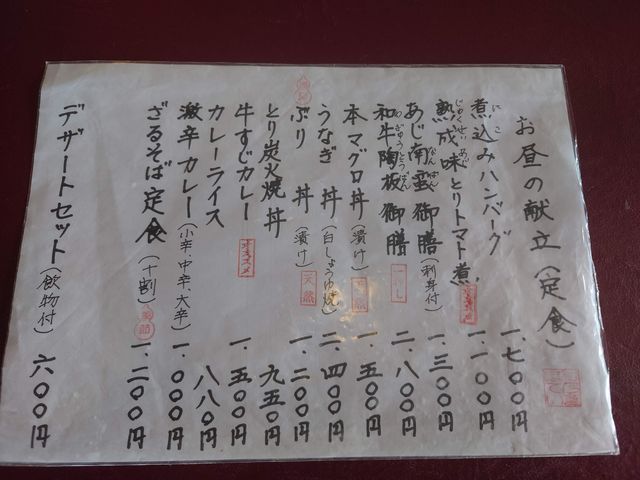 お昼の献立(定食)
煮込みハンバーグ 一、七〇〇円
熟成味とりトマト煮 一、一〇〇円
あじ南蛮御膳(刺身付) 一、三〇〇円
和牛陶板御膳 一押し 二、八〇〇円
本マグロ丼(漬け) 天然 一、五〇〇円
うなぎ丼(白しょうゆ焼) 二、四〇〇円
ぶり丼(漬け) 天然 一、二〇〇円
とり炭火焼丼 九五〇円
牛すじカレー オススメ 一、五〇〇円
カレーライス 八八〇円
激辛カレー(小辛、中辛、大辛) 一、〇〇〇円
ざるそば定食(十割) 一、二〇〇円
デザートセット(飲物付) 六〇〇円